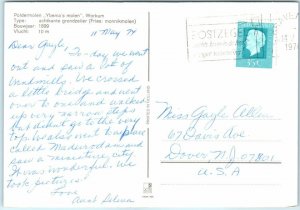 Poldermolen „Ybema's molen", Workum
Type: achtkante grondzeiler (Fries: monniksmolen)
Bouwjaar: 1899
Vlucht: 10 m
11 May 74
Dear Gayle,
To-day we went
out and saw a lot of
windmills. We crossed
a little bridge and went
over to one and walked
up very narrow steps
and got to the very
top. We also went to a place
called Madurodam and
saw a miniature city
It was wonderful. We
took pictures.
Love
Aunt
Nederland
35c
Miss Gayle Allen
67 Davis Ave
Dover N.J. 07801
U.S.A